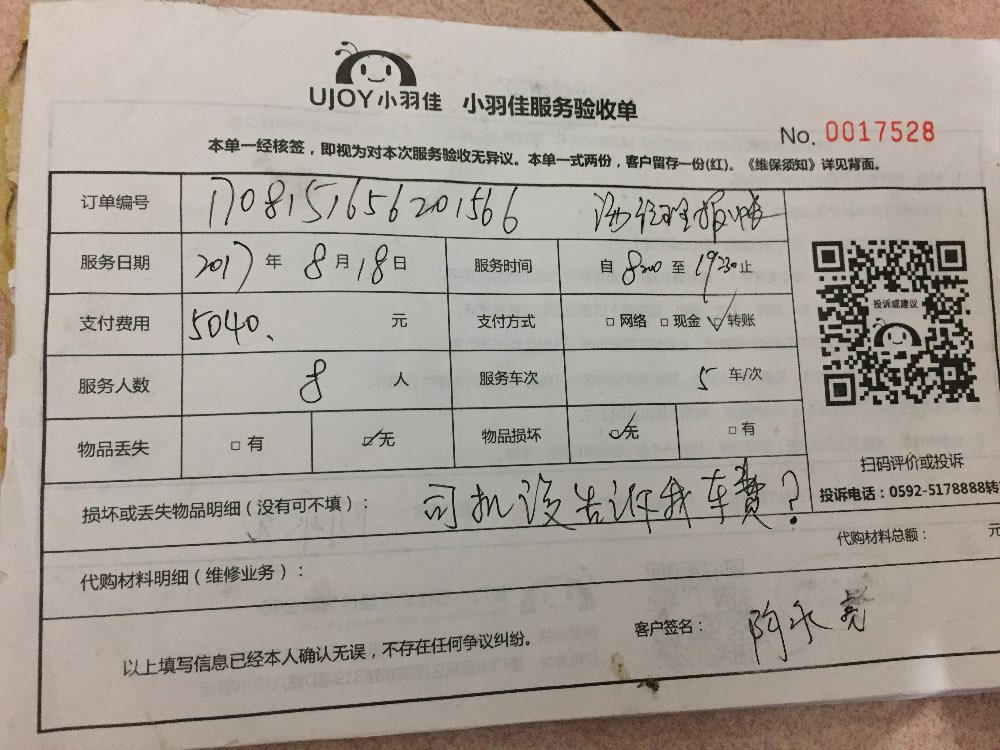 UJOY小羽佳 小羽佳服务验收单
No. 0017528
本单一经核签，即视为对本次服务验收无异议。本单一式两份，客户留存一份(红)。《维保须知》详见背面。
订单编号 1708151656201566 经理报账
服务日期 2017 年 8 月 18 日 服务时间 自 8:00 至 19:30 止
支付费用 5040、 元 支付方式 □网络 □现金 ☑转账
服务人数 8 人 服务车次 5 车/次
物品丢失 □有 ☑无 物品损坏 ☑无 □有
投诉或建议
扫码评价或投诉
投诉电话：0592-5178888转
损坏或丢失物品明细（没有可不填）： 司机没告诉我车费？
代购材料明细（维修业务）： 代购材料总额： 元
以上填写信息已经本人确认无误，不存在任何争议纠纷。 客户签名：